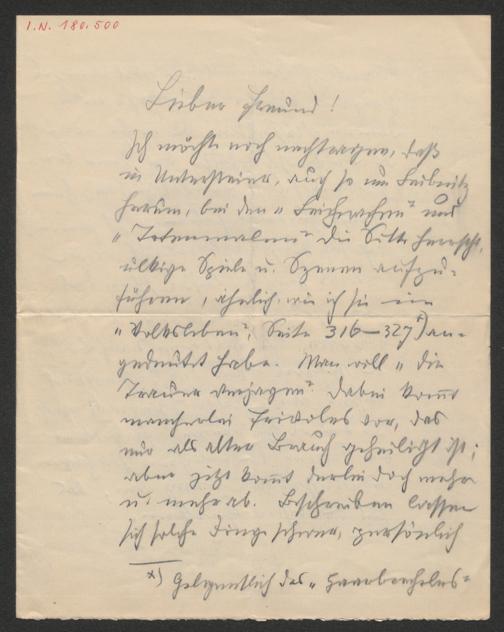 I.N. 180.500
Lieber Freund!
Ich möchte noch nachtragen, daß
in Untersteier, auch so um Leibnitz
herum, bei den „Leichwachen" und
„Totenmalen" die Sitte herrscht,
ulkige Spiele u. Szenen aufzu-
führen, ähnlich wie ich sie im
„Volksleben", Seite 316–327 x) an-
gedeutet habe. Man will „die
Trauer verjagen". Dabei kommt
mancherlei Frivoles vor, das
nur als alter Brauch geheiligt ist;
aber jetzt kommt derlei doch mehr
u. mehr ab. Beschreiben lassen
sich solche Dinge schwer, persönlich
x) Gelegentlich des „Haarbrechelns"